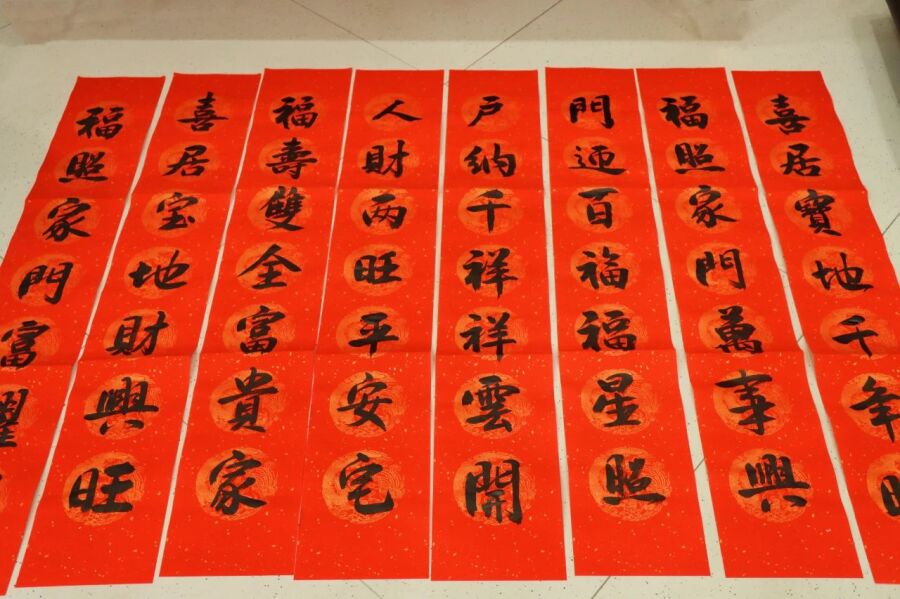 喜居寶地千年
福照家門萬事興
門迎百福福星照
户納千祥祥雲開
人財两旺平安宅
福壽雙全富貴家
喜居宝地財興旺
福照家門富